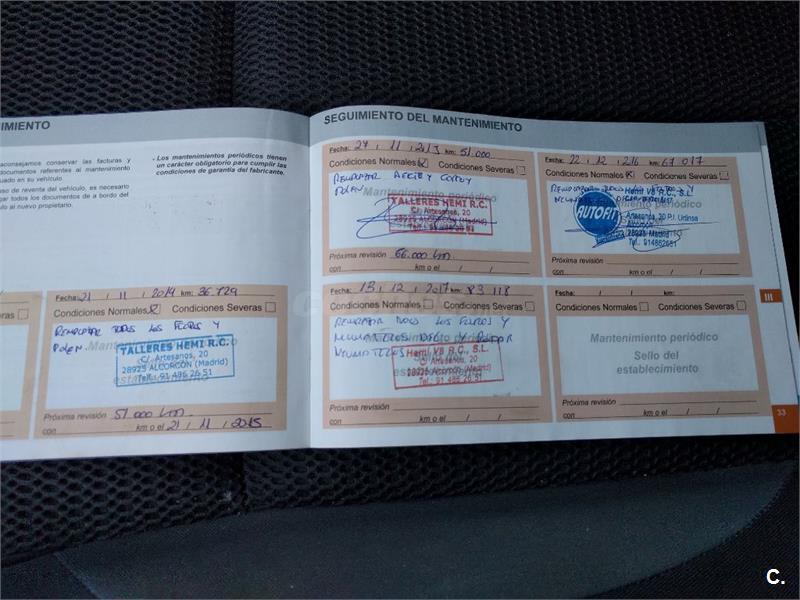 IMIENTO
aconsejamos conservar las facturas y
documentos referentes al mantenimiento
uado en su vehículo.
so de reventa del vehículo, es necesario
gar todos los documentos de a bordo del
ulo al nuevo propietario.
- Los mantenimientos periódicos tienen
un carácter obligatorio para cumplir las
condiciones de garantía del fabricante.
eras
Fecha: 21 / 11 / 2014 km: 36.729
Condiciones Normales Condiciones Severas
REMPLAZAR TODOS LOS FILTROS Y
POLEN
Mantenimiento
TALLERES HEMI R.C.
C/. Artesanos, 20
28925 ALCORCÓN (Madrid)
Telf.: 91 486 26 51
Próxima revisión 51.000 km
con km o el 21 / 11 / 2015
SEGUIMIENTO DEL MANTENIMIENTO
Fecha: 27 / 11 / km: 51.000
Condiciones Normales Condiciones Severas
REMPLAZAR ACEITE Y
POLEN
Mantenimiento periódico
TALLERES HEMI R.C.
C/. Artesanos, 20
28925 ALCORCÓN (Madrid)
Telf.: 91 486 26 51
Próxima revisión 66.000 km
con km o el / /
Fecha: 22 / 12 / 216 km: 67 017
Condiciones Normales Condiciones Severas
REMPLAZAR TODOS LOS FILTROS Y
Hemi V8 R.C., S.L.
AUTOFIT
Artesanos, 20 P.I. Urtinsa
ALCORCÓN
28925 Madrid
Tel.: 914862651
Próxima revisión
con km o el / /
Fecha: 13 / 12 / 2017 km: 83 118
Condiciones Normales Condiciones Severas
REMPLAZAR TODOS LOS FILTROS Y
NEUMATICOS Y
NEUMATICOS
Hemi V8 R.C., S.L.
C/. Artesanos, 20
28925 ALCORCÓN (Madrid)
Telf.: 91 486 26 51
Próxima revisión
con km o el / /
Fecha: / / km:
Condiciones Normales Condiciones Severas
Mantenimiento periódico
Sello del
establecimiento
Próxima revisión
con km o el / /
III
33
C.